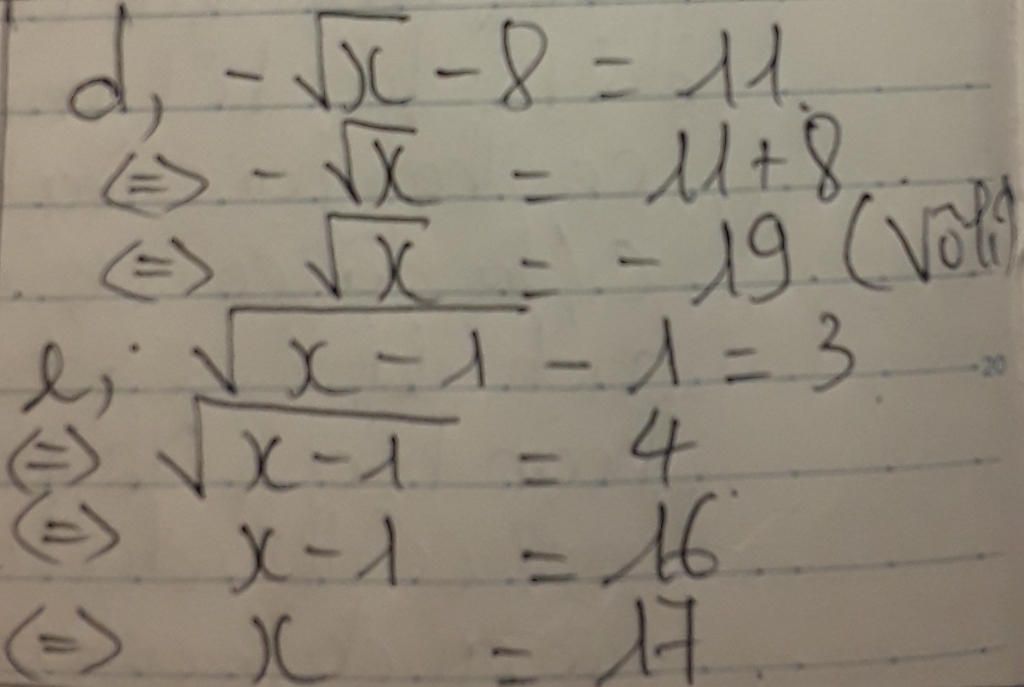 d, -√x - 8 = 11.
<=> -√x = 11+8
<=> √x = -19 (Vô lí)
e, √(x-1) - 1 = 3
20
<=> √(x-1) = 4
<=> x-1 = 16
<=> x = 17